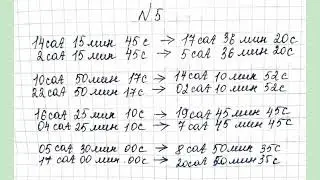 №5
14 саат 15 мин 45 с → 17 саат 36 мин 20 с
2 саат 15 мин 45 с → 5 саат 36 мин 20 с
10 саат 50 мин 17 с → 14 саат 10 мин 52 с
22 саат 50 мин 17 с → 02 саат 10 мин 52 с
16 саат 25 мин 10 с → 19 саат 45 мин 45 с
04 саат 25 мин 10 с → 7 саат 45 мин 45 с
05 саат 30 мин 00 с → 8 саат 50 мин 35 с
17 саат 00 мин 00 с → 20 саат 50 мин 35 с